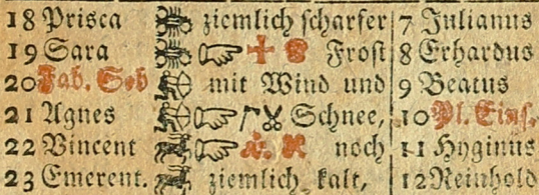 18 Prisca ziemlich scharfer 7 Julianus
19 Sara Frost 8 Erhardus
20 Fab. Seb mit Wind und 9 Beatus
21 Agnes Schnee, 10 Pl. Eins.
22 Vincent noch 11 Hyginus
23 Emerent. ziemlich kalt, 12 Reinhold